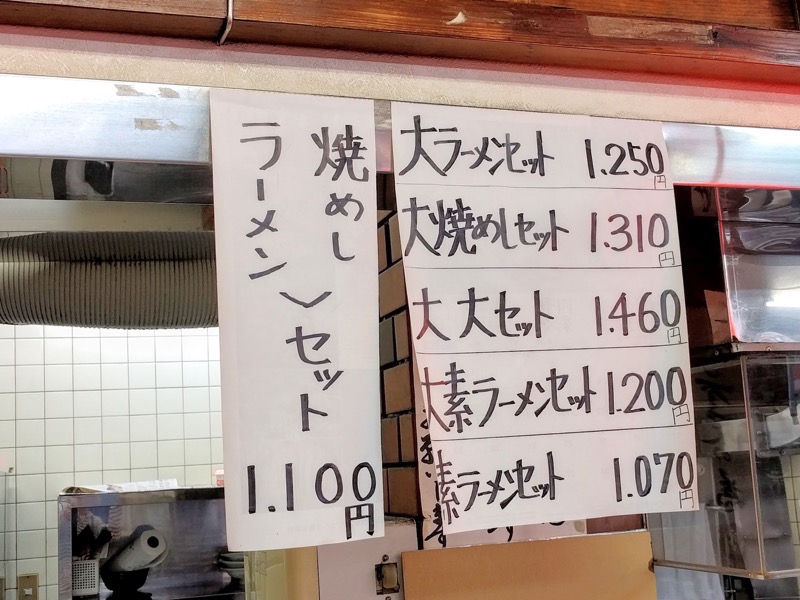 焼めし
ラーメン 〉セット
1.100円
大ラーメンセット 1.250円
大焼めしセット 1.310円
大 大セット 1.460円
大素ラーメンセット 1.200円
素ラーメンセット 1.070円